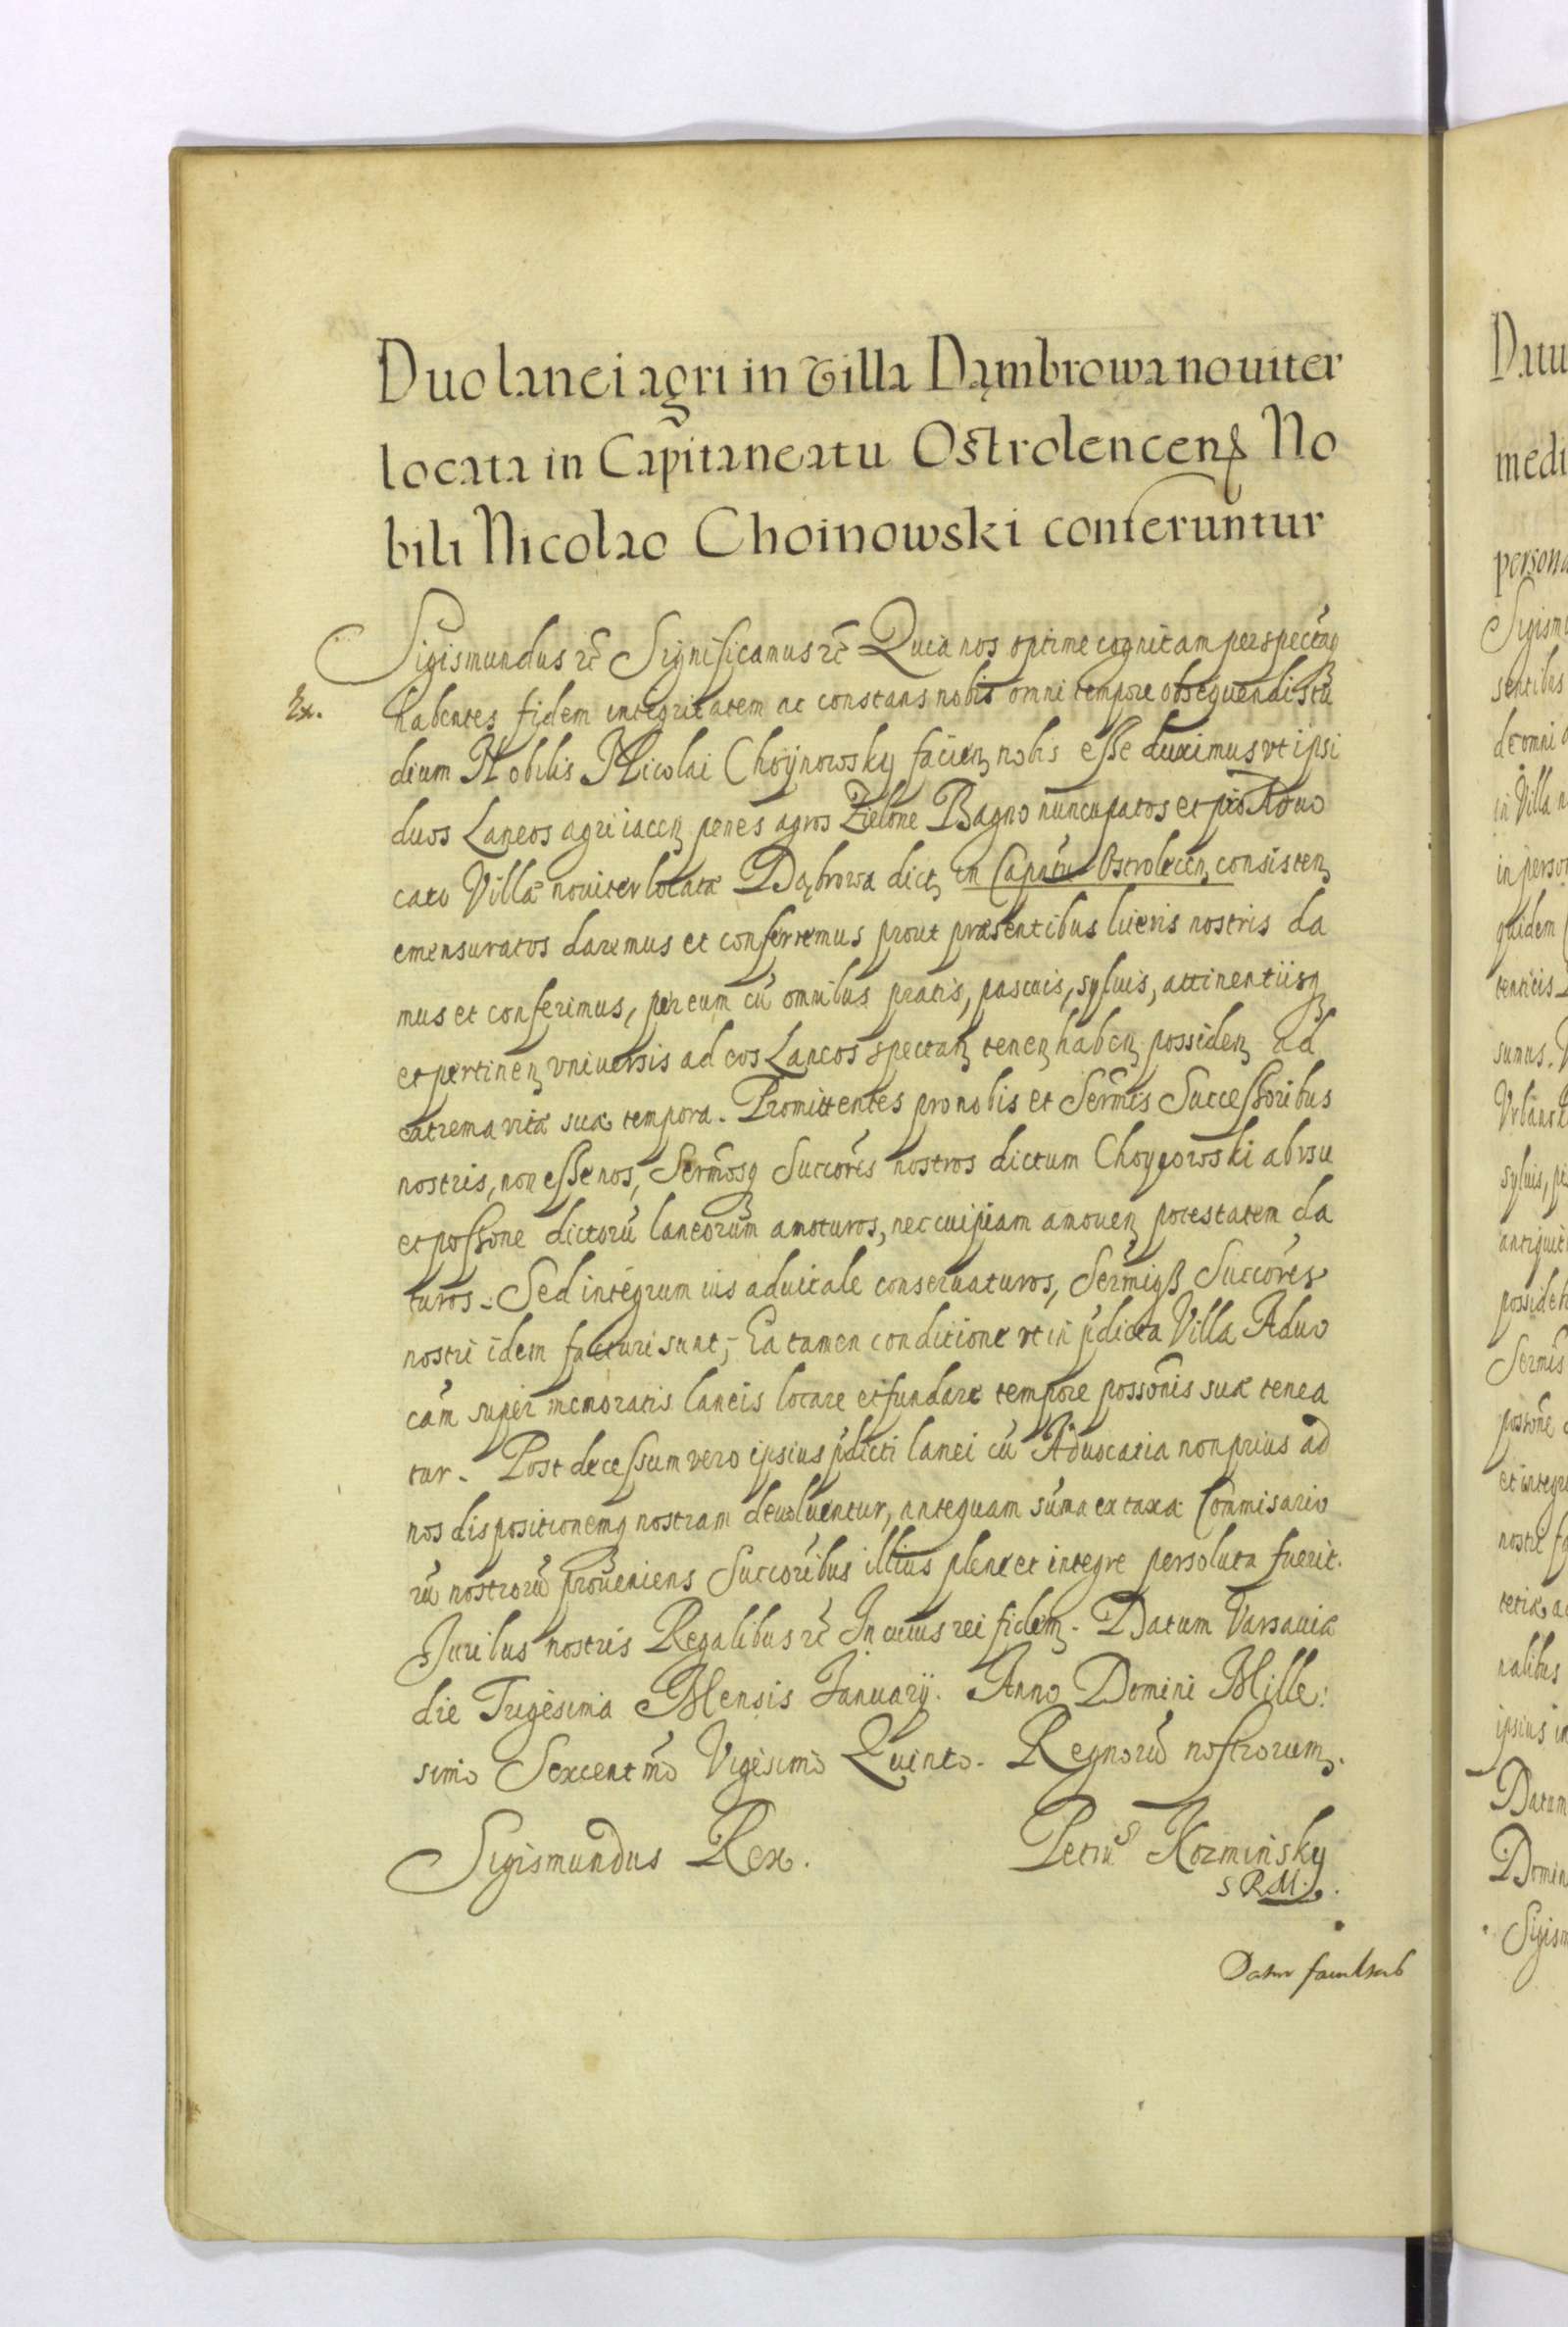 Duo lanei agri in Villa Dąmbrowa nouiter
locata in Capitaneatu Ostrolencens No
bili Nicolao Choinowski conferuntur
Sigismundus etc Significamus etc Quia nos optime cognitam perspectamq
Ex. habentes fidem integritatem ac constans nobis omni tempore obsequendi stu
dium Nobilis Nicolai Choynowsky facien nobis esse duximus vt ipsi
duos Laneos agri iacen penes agros Zielone Bagno nuncupatos et pro Aduo
cato Villæ nouiter locatæ Dąbrowa dict in Capatu Ostrolecen consisten
emensuratos daremus et conferremus prout præsentibus literis nostris da
mus et conferimus, per eum cũ omnibus pratis, pascuis, syluis, attinentiisq
et pertinen vniuersis ad eos Laneos spectan tenen haben possiden ad
extrema vitæ suæ tempora. Promittentes pro nobis et Sermis Successoribus
nostris, non esse nos, Sermosq Succores nostros dictum Choynowski ab vsu
et possone dictorũ laneorum amoturos, nec cuipiam amouen potestatem da
turos. Sed integrum ius aduitale conseruaturos, Sermiq Succores
nostri idem facturi sunt, Ea tamen conditione vt in pdicta Villa Aduo
cam super memoratis laneis locare et fundare tempore possonis suæ tenea
tur. Post decessum vero ipsius pdicti lanei cũ Aduocatia non prius ad
nos dispositionemq nostram deuoluentur, antequam sũma ex taxa Commisario
rũ nostrorũ proueniens Succoribus illius plene et integre persoluta fuerit.
Juribus nostris Regalibus etc In cuius rei fidem. Datum Varsauiæ
die Trigesima Mensis Januarij. Anno Domini Mille:
simo Sexcentmo Vigesimo Quinto. Regnorũ nostrorum.
Sigismundus Rex. Petrus Kozminsky
SRM.
Datur facultas